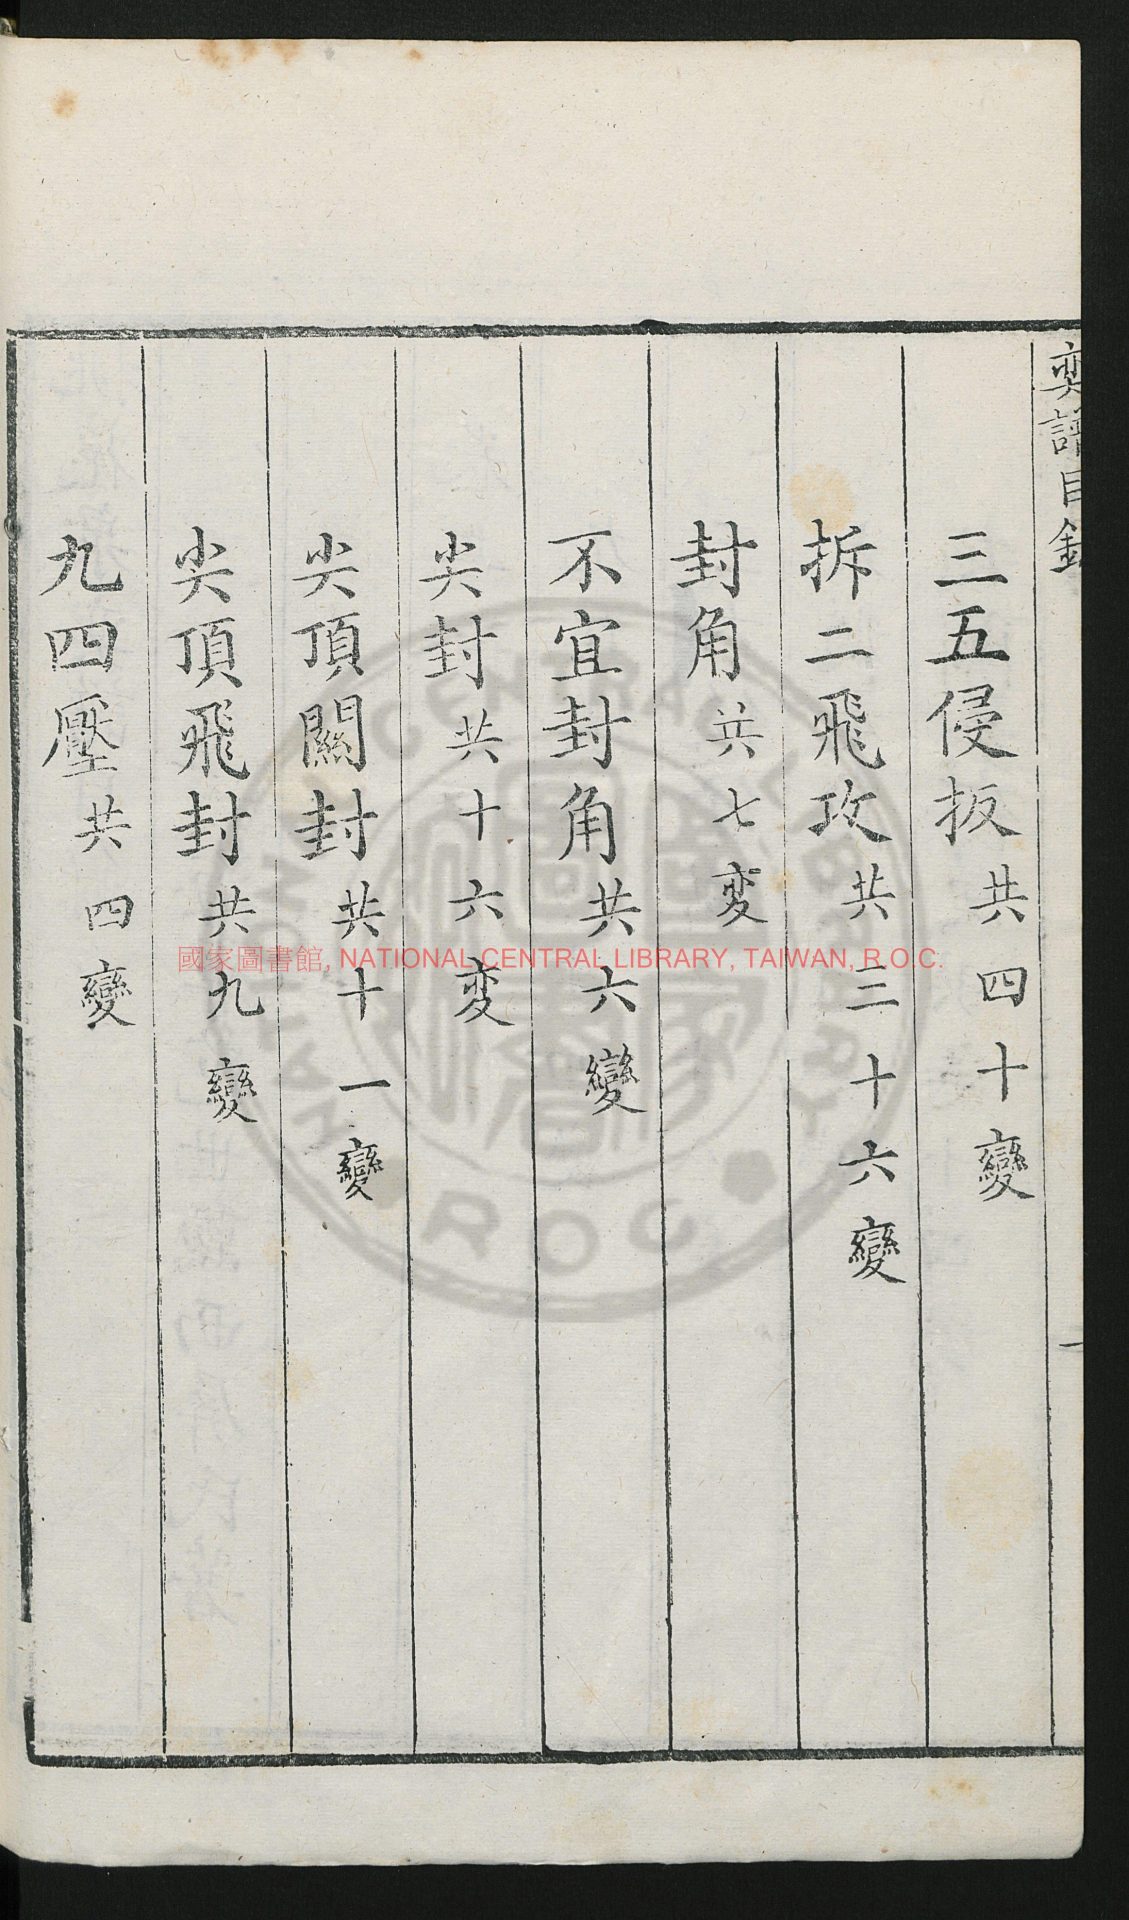 奕譜目錄
一
三五侵扳共四十變
拆二飛攻共三十六變
封角共七変
不宜封角共六變
尖封共十六変
尖頂關封共十一變
尖頂飛封共九變
九四壓共四變
國家圖書館, NATIONAL CENTRAL LIBRARY, TAIWAN, R.O.C.